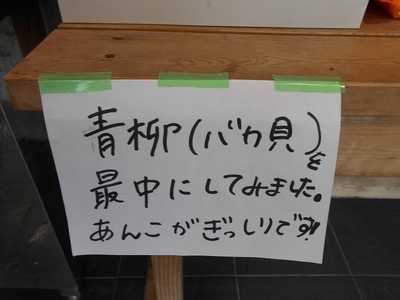 青柳(バカ貝)を
最中にしてみました。
あんこがぎっしりです!!